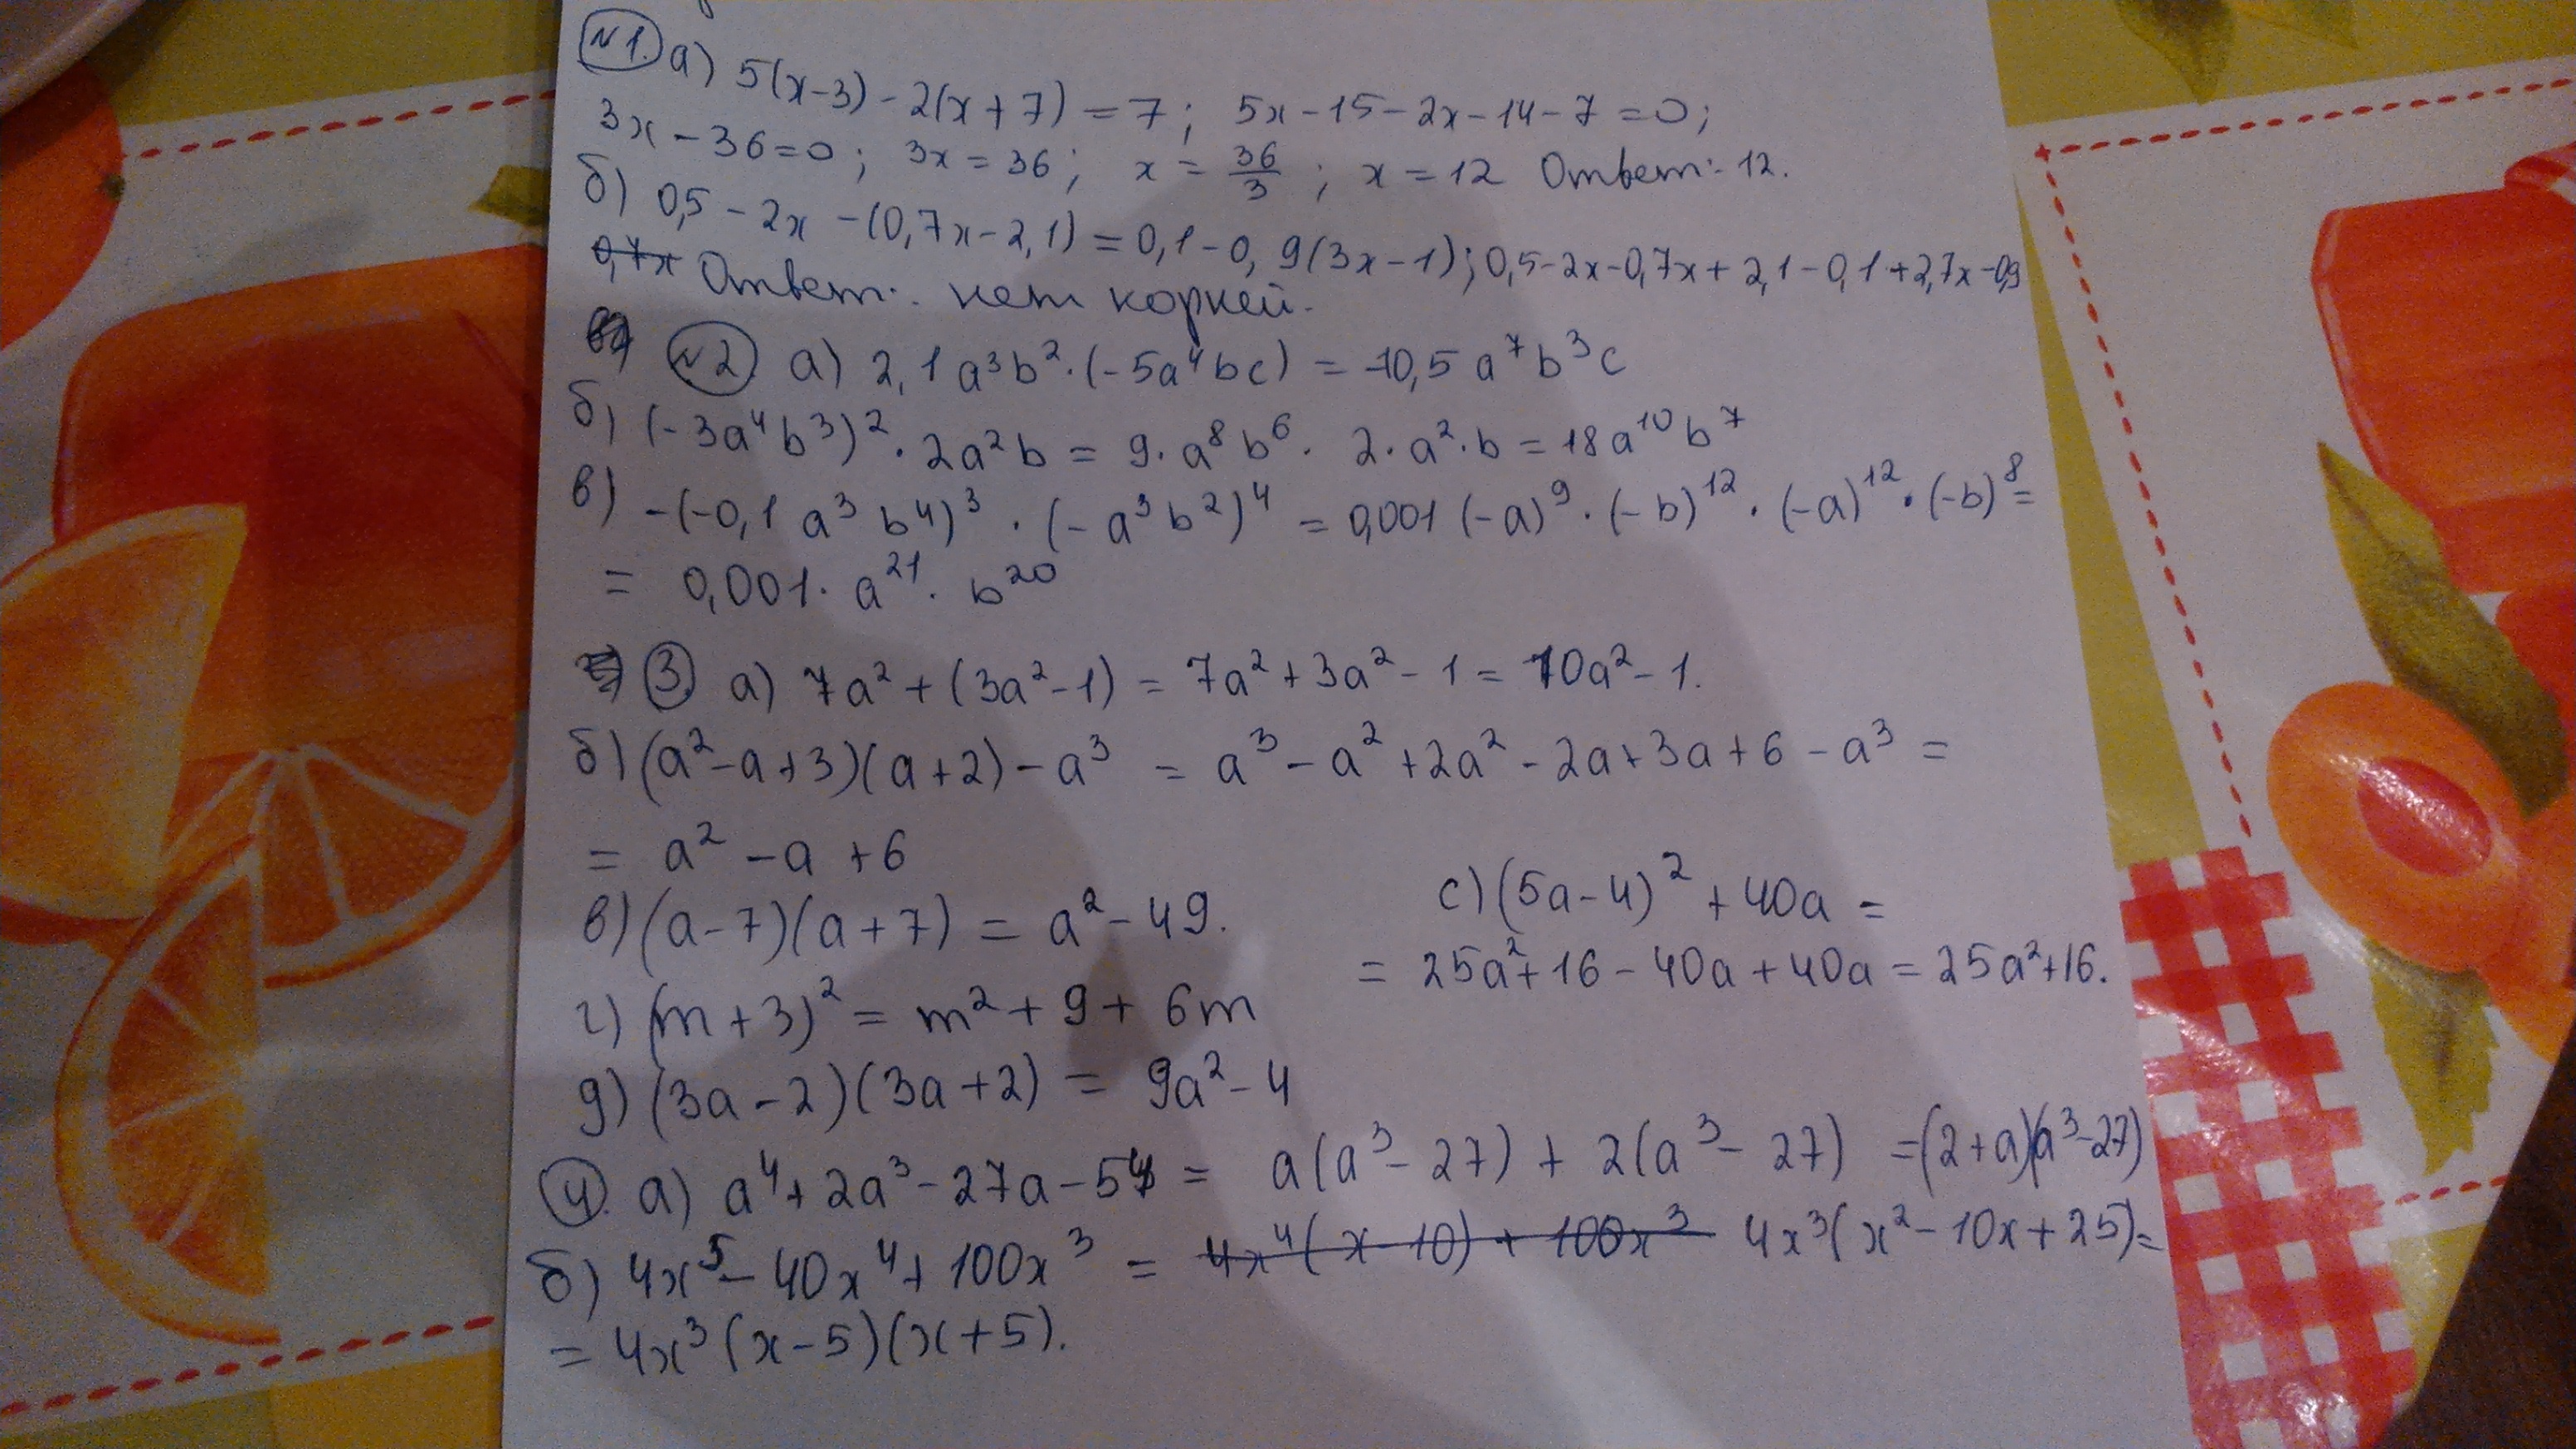 №1. а) 5(x-3) - 2(x+7) = 7; 5x-15-2x-14-7=0;
3x-36=0; 3x=36; x = 36/3; x=12 Ответ: 12.
б) 0,5-2x-(0,7x-2,1)=0,1-0,9(3x-1); 0,5-2x-0,7x+2,1-0,1+2,7x-0,9
0,7x Ответ: нет корней.
№2 а) 2,1a³b²·(-5a⁴bc) = -10,5a⁷b³c
б) (-3a⁴b³)²·2a²b = 9·a⁸b⁶·2·a²·b = 18a¹⁰b⁷
в) -(-0,1a³b⁴)³·(-a³b²)⁴ = 0,001(-a)⁹·(-b)¹²·(-a)¹²·(-b)⁸=
= 0,001·a²¹·b²⁰
3. а) 7a²+(3a²-1) = 7a²+3a²-1 = 10a²-1.
б) (a²-a+3)(a+2)-a³ = a³-a²+2a²-2a+3a+6-a³ =
= a²-a+6
в) (a-7)(a+7) = a²-49.
с) (5a-4)²+40a =
= 25a²+16-40a+40a = 25a²+16.
г) (m+3)² = m²+9+6m
д) (3a-2)(3a+2) = 9a²-4
4. а) a⁴+2a³-27a-54 = a(a³-27)+2(a³-27) =(2+a)(a³-27)
б) 4x⁵-40x⁴+100x³ = 4x⁴(x-10)+100x³ 4x³(x²-10x+25)=
= 4x³(x-5)(x+5).